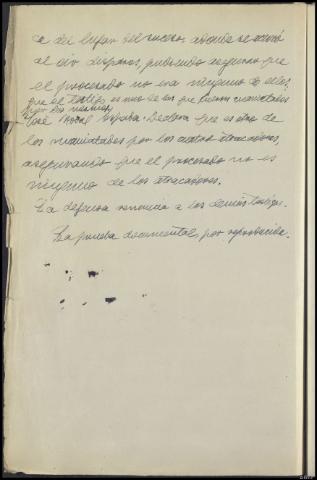 ca del lugar del suceso, adonde se acercó
al oir disparos, pudiendo asegurar que
el procesado no era ninguno de ellos,
que el testigo es uno de los que fueron maniatados
por los mismos
José Declara que es otro de
los maniatados por los citados atracadores,
asegurando que el procesado no es
ninguno de los atracadores.
La defensa renuncia a los demás testigos.
La prueba documental, por reproducida.